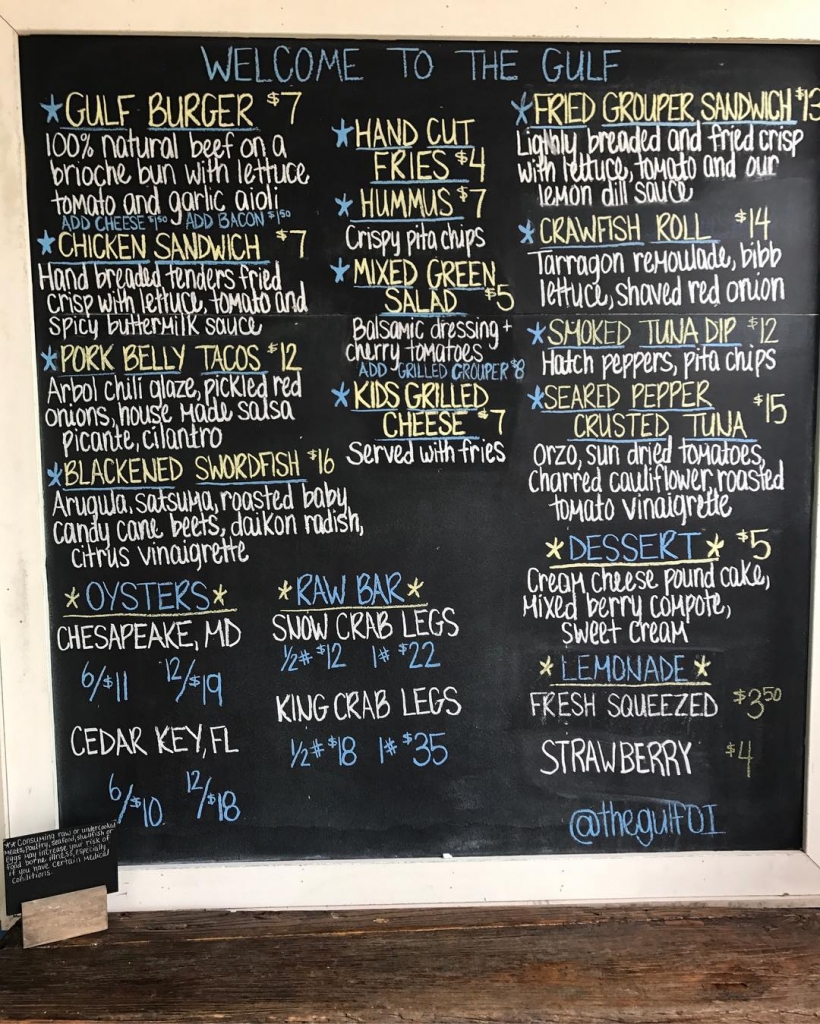 WELCOME TO THE GULF
*GULF BURGER $7
100% natural beef on a
brioche bun with lettuce
tomato and garlic aioli
ADD CHEESE $1.50 ADD BACON $1.50
*CHICKEN SANDWICH $7
Hand breaded tenders fried
crisp with lettuce, tomato and
spicy buttermilk sauce
*PORK BELLY TACOS $12
Arbol chili glaze, pickled red
onions, house made salsa
picante, cilantro
*BLACKENED SWORDFISH $16
Arugula, satsuma, roasted baby
candy cane beets, daikon radish,
citrus vinaigrette
*OYSTERS*
CHESAPEAKE, MD
6/$11 12/$19
CEDAR KEY, FL
6/$10 12/$18
*HAND CUT
FRIES $4
*HUMMUS $7
Crispy pita chips
*MIXED GREEN
SALAD $5
Balsamic dressing +
cherry tomatoes
ADD GRILLED GROUPER $8
*KIDS GRILLED
CHEESE $7
Served with fries
*RAW BAR*
SNOW CRAB LEGS
1/2# $12 1# $22
KING CRAB LEGS
1/2# $18 1# $35
*FRIED GROUPER SANDWICH $13
Lightly breaded and fried crisp
with lettuce, tomato and our
lemon dill sauce
*CRAWFISH ROLL $14
Tarragon remoulade, bibb
lettuce, shaved red onion
*SMOKED TUNA DIP $12
Hatch peppers, pita chips
*SEARED PEPPER
CRUSTED TUNA $15
Orzo, sun dried tomatoes,
charred cauliflower, roasted
tomato vinaigrette
*DESSERT* $5
Cream cheese pound cake,
Mixed berry compote,
sweet cream
*LEMONADE*
FRESH SQUEEZED $3.50
STRAWBERRY $4
@thegulfOI
** Consuming raw or undercooked
meats, poultry, seafood, shellfish or
eggs may increase your risk of
food borne illness, especially
if you have certain medical
conditions.